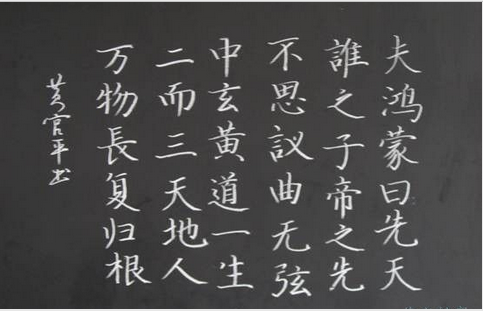 夫鸿蒙曰先天
誰之子帝之先
不思議曲无弦
中玄黄道一生
二而三天地人
万物長复归根
黄官平书